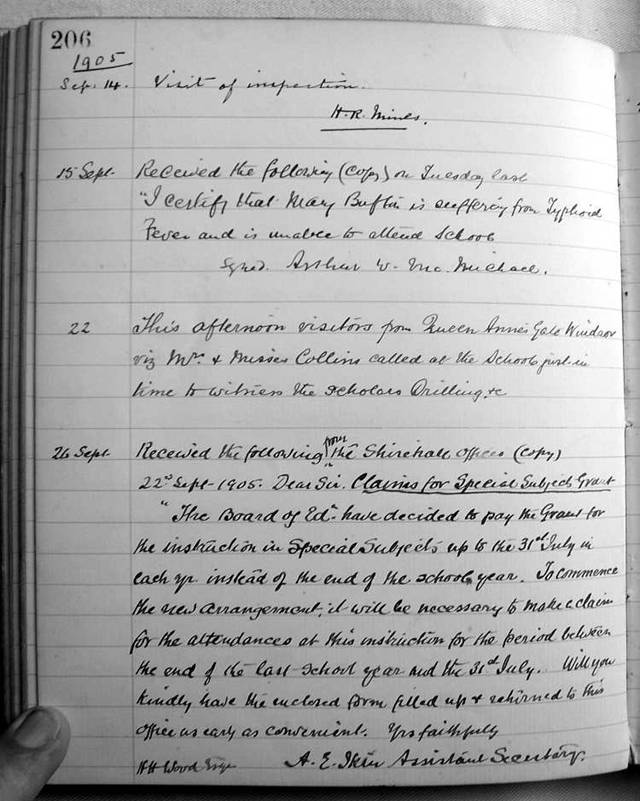 206
1905
Sep. 14. Visit of inspection.
H. R. Mines.
15 Sept. Received the following (copy) on Tuesday last
"I certify that Mary is suffering from Typhoid
Fever and is unable to attend School
Signed. Arthur W. Mc. Michael.
22 This afternoon visitors from Queen Anne's Gate Windsor
viz Mrs. & Misses Collins called at the School just in
time to witness the scholars Drilling &c
26 Sept. Received the following from the Shirehall Offices (copy)
22nd Sept. 1905. Dear Sir. Claims for Special Subjects Grant
"The Board of Edn. have decided to pay the Grant for
the instruction in Special Subjects up to the 31st July in
each yr. instead of the end of the school year. To commence
the new arrangement, it will be necessary to make a claim
for the attendances at this instruction for the period between
the end of the last school year and the 31st July. Will you
kindly have the enclosed form filled up & returned to this
office as early as convenient. Yrs faithfully
H H Wood Esqr A. E. Ikin Assistant Secretary.